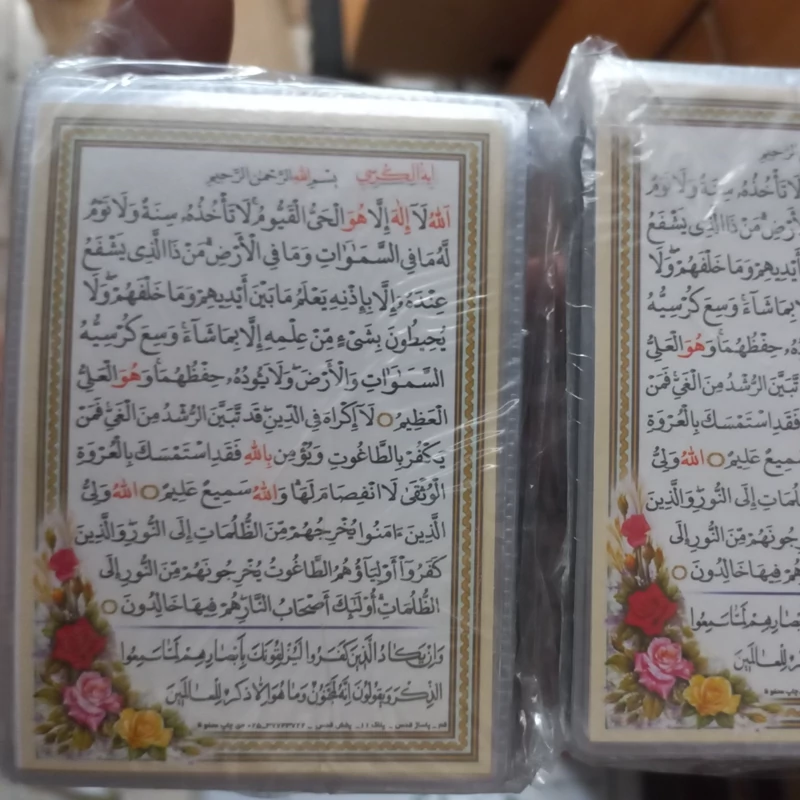 آیة الکرسی
بِسْمِ اللهِ الرَّحْمٰنِ الرَّحِيمِ
اَللهُ لَا إِلٰهَ إِلَّا هُوَ الْحَيُّ الْقَيُّومُ لَا تَأْخُذُهُ سِنَةٌ وَلَا نَوْمٌ
لَهُ مَا فِي السَّمٰوَاتِ وَمَا فِي الْأَرْضِ مَنْ ذَا الَّذِي يَشْفَعُ
عِنْدَهُ إِلَّا بِإِذْنِهِ يَعْلَمُ مَا بَيْنَ أَيْدِيهِمْ وَمَا خَلْفَهُمْ وَلَا
يُحِيطُونَ بِشَيْءٍ مِنْ عِلْمِهِ إِلَّا بِمَا شَاءَ وَسِعَ كُرْسِيُّهُ
السَّمٰوَاتِ وَالْأَرْضَ وَلَا يَئُودُهُ حِفْظُهُمَا وَهُوَ الْعَلِيُّ
الْعَظِيمُ لَا إِكْرَاهَ فِي الدِّينِ قَدْ تَبَيَّنَ الرُّشْدُ مِنَ الْغَيِّ فَمَنْ
يَكْفُرْ بِالطَّاغُوتِ وَيُؤْمِنْ بِاللهِ فَقَدِ اسْتَمْسَكَ بِالْعُرْوَةِ
الْوُثْقَىٰ لَا انْفِصَامَ لَهَا وَاللهُ سَمِيعٌ عَلِيمٌ اَللهُ وَلِيُّ
الَّذِينَ ءَامَنُوا يُخْرِجُهُمْ مِنَ الظُّلُمَاتِ إِلَى النُّورِ وَالَّذِينَ
كَفَرُوا أَوْلِيَاؤُهُمُ الطَّاغُوتُ يُخْرِجُونَهُمْ مِنَ النُّورِ إِلَى
الظُّلُمَاتِ أُولٰئِكَ أَصْحَابُ النَّارِ هُمْ فِيهَا خَالِدُونَ
وَإِنْ يَكَادُ الَّذِينَ كَفَرُوا لَيُزْلِقُونَكَ بِأَبْصَارِهِمْ لَمَّا سَمِعُوا
الذِّكْرَ وَيَقُولُونَ إِنَّهُ لَمَجْنُونٌ وَمَا هُوَ إِلَّا ذِكْرٌ لِلْعَالَمِينَ
قم ـ پاساژ قدس ـ پلاک ۱۱ ـ پخش قدس ـ
الرَّحِيمِ
لَا تَأْخُذُهُ سِنَةٌ وَلَا نَوْمٌ
مَنْ ذَا الَّذِي يَشْفَعُ
أَيْدِيهِمْ وَمَا خَلْفَهُمْ وَلَا
بِمَا شَاءَ وَسِعَ كُرْسِيُّهُ
حِفْظُهُمَا وَهُوَ الْعَلِيُّ
تَبَيَّنَ الرُّشْدُ مِنَ الْغَيِّ فَمَنْ
فَقَدِ اسْتَمْسَكَ بِالْعُرْوَةِ
سَمِيعٌ عَلِيمٌ اَللهُ وَلِيُّ
إِلَى النُّورِ وَالَّذِينَ
مِنَ النُّورِ إِلَى
هُمْ فِيهَا خَالِدُونَ
لَمَّا سَمِعُوا